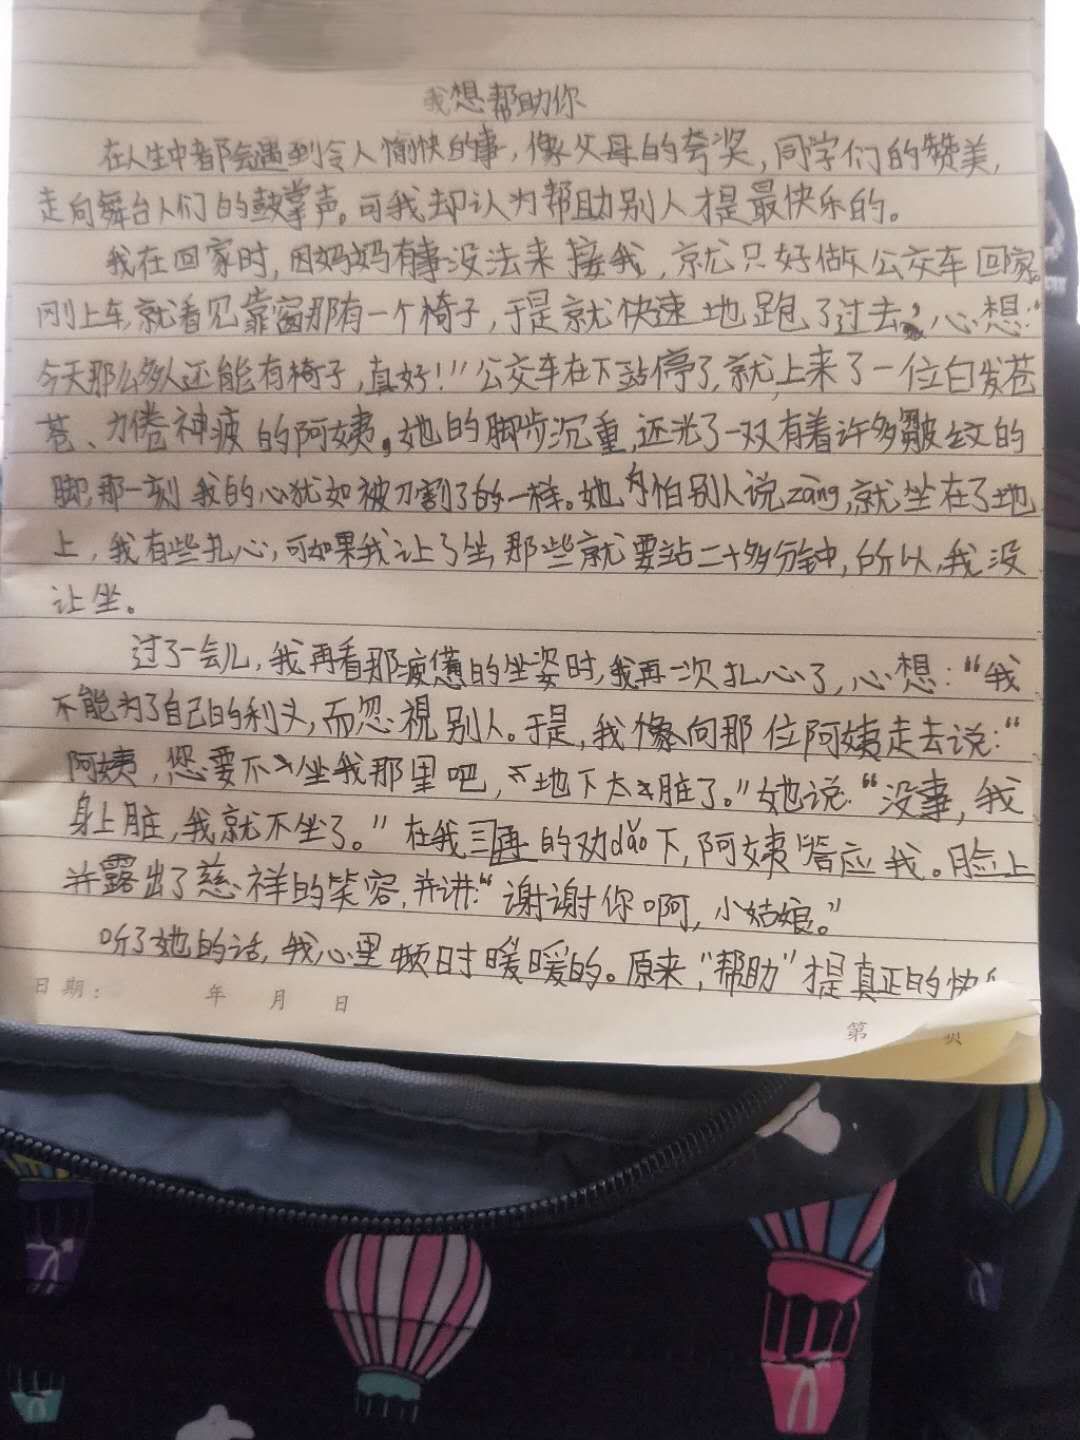 我想帮助你
在人生中都会遇到令人愉快的事，像父母的夸奖，同学们的赞美，
走向舞台人们的鼓掌声。可我却认为帮助别人才是最快乐的。
我在回家时，因妈妈有事没法来接我，就只好做乐公交车回家。
刚上车，就看见靠窗那有一个椅子，于是就快速地跑了过去，心想:“
今天那么多人还能有椅子，真好!!”公交车在下站停了，就上来了一位白发苍
苍、力倦神疲的阿姨，她的脚步沉重，还光了一双有着许多皱纹的
脚，那一刻我的心犹如被刀割了的一样。她怕别人说zāng，就坐在了地
上，我有些扎心，可如果我让了坐，那些就要站二十多分钟，所以，我没
让坐。
过了一会儿，我再看那疲惫的坐姿时，我再一次扎心了，心想:“我
不能为了自己的利头，而忽视别人。于是，我像向那位阿姨走去说:“
阿姨，您要不坐我那里吧，地下太脏了。”她说:“没事，我
身上脏，我就不坐了。”在我三再的劝dǎo下，阿姨答应我。脸上
并露出了慈祥的笑容，并讲:“谢谢你啊，小姑娘。”
听了她的话，我心里顿时暖暖的。原来，“帮助”才是真正的快
日期: 年 月 日
第 页